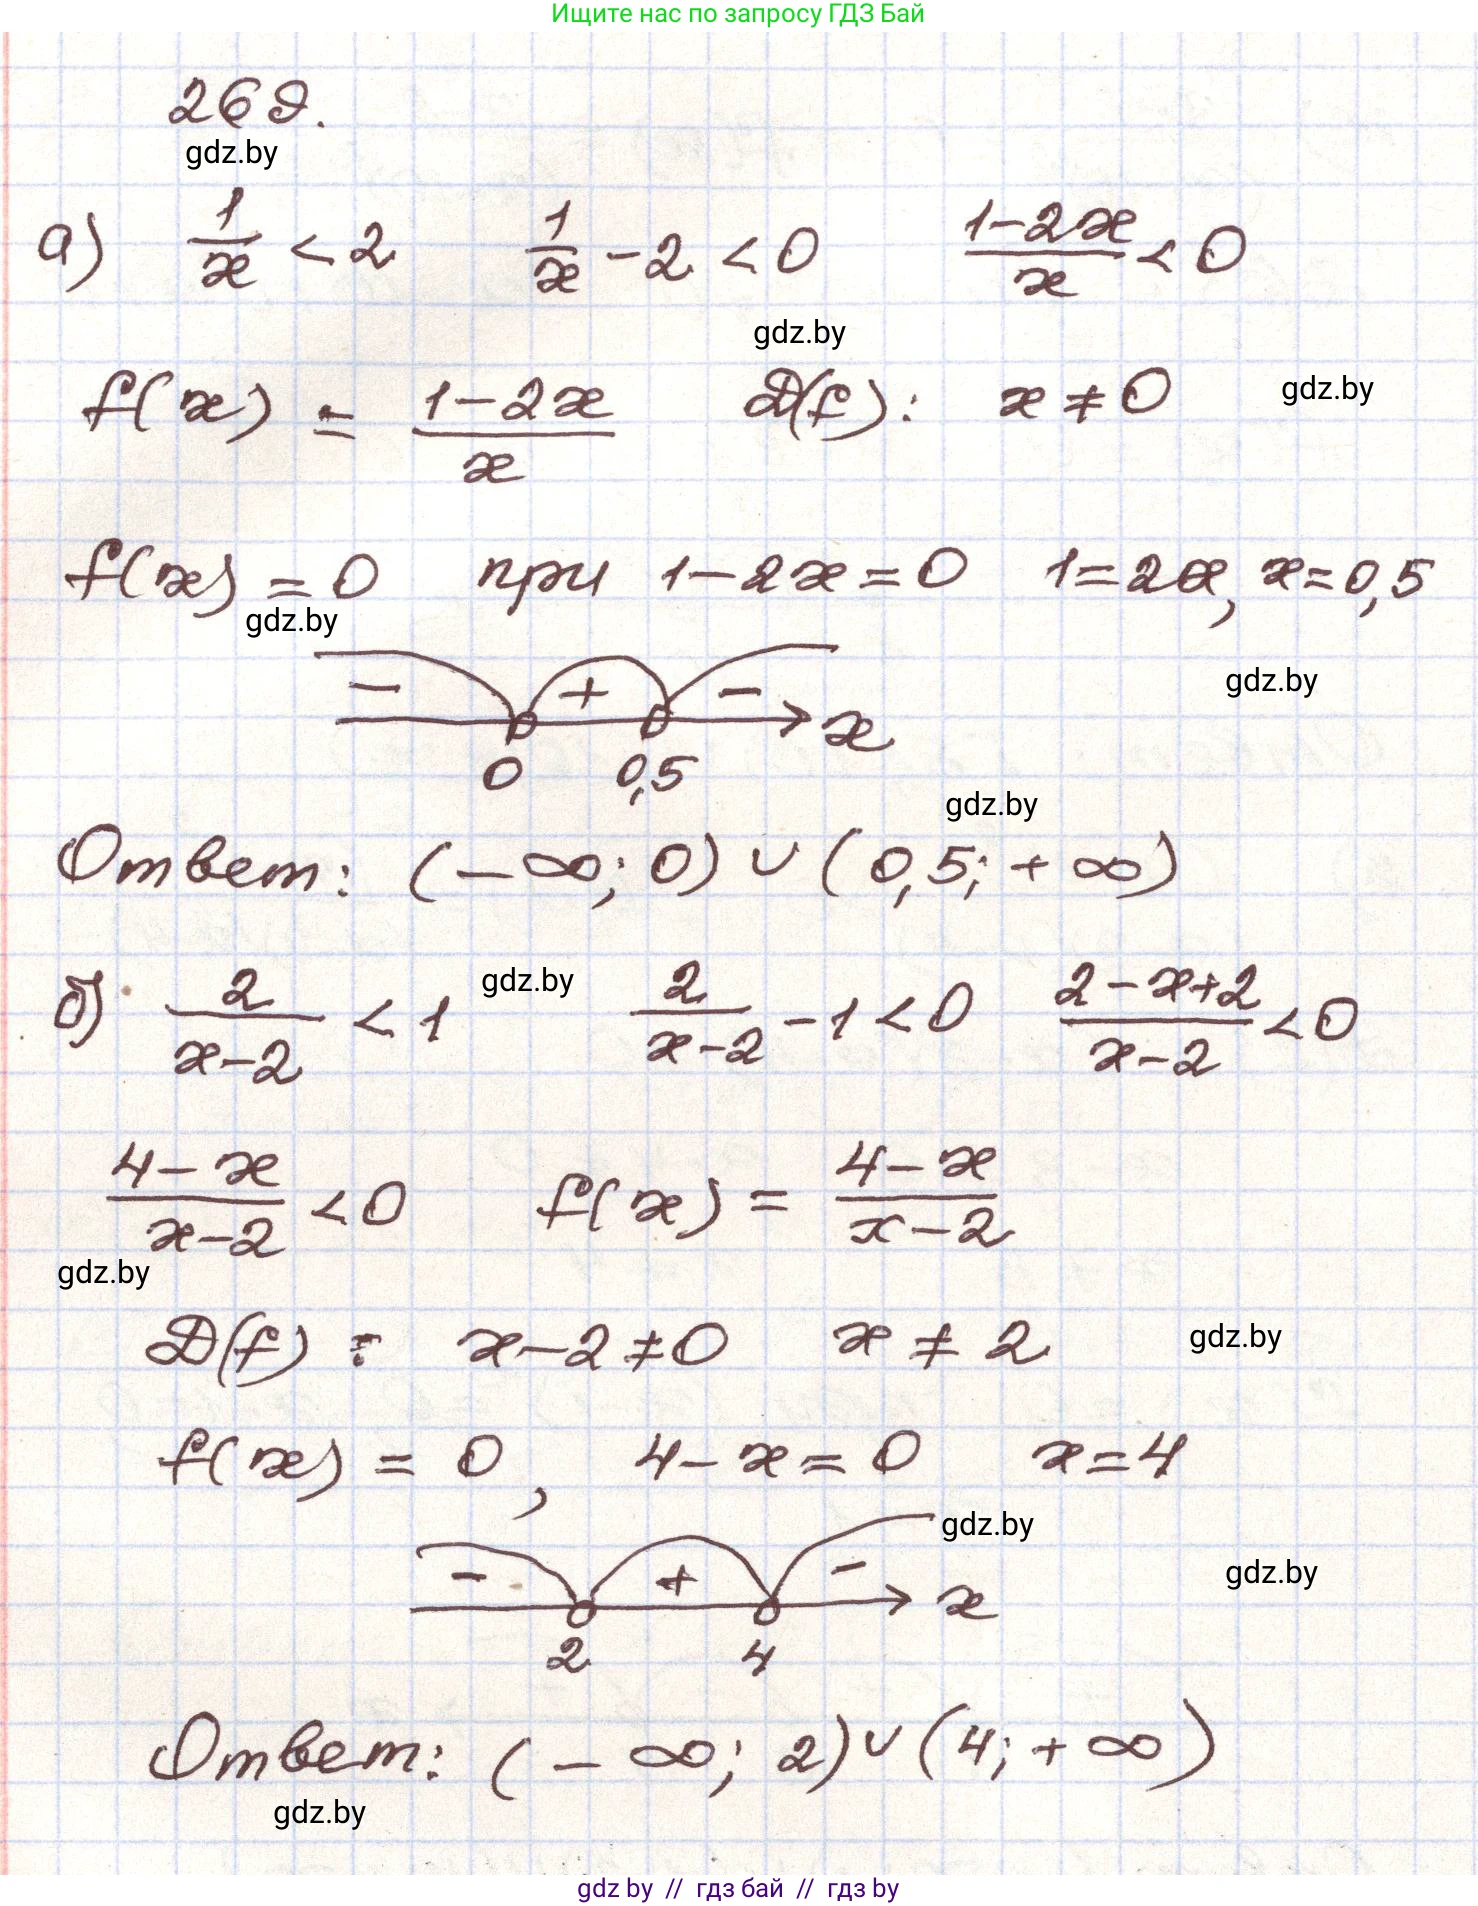 Ищите нас по запросу ГДЗ Бай
269.
gdz.by
а) 1/x < 2   1/x - 2 < 0   (1-2x)/x < 0
gdz.by
f(x) = (1-2x)/x   D(f): x ≠ 0   gdz.by
f(x) = 0 при 1-2x=0   1=2x, x=0,5
gdz.by
gdz.by
- + - x
0 0,5
gdz.by
Ответ: (-∞; 0) ∪ (0,5; +∞)
б) 2/(x-2) < 1   gdz.by   2/(x-2) - 1 < 0   (2-x+2)/(x-2) < 0
(4-x)/(x-2) < 0   f(x) = (4-x)/(x-2)
gdz.by
D(f): x-2≠0   x ≠ 2   gdz.by
f(x) = 0, 4-x=0   x=4
gdz.by
- + - x   gdz.by
2 4
Ответ: (-∞; 2) ∪ (4; +∞)
gdz.by
gdz by // гдз бай // гдз by